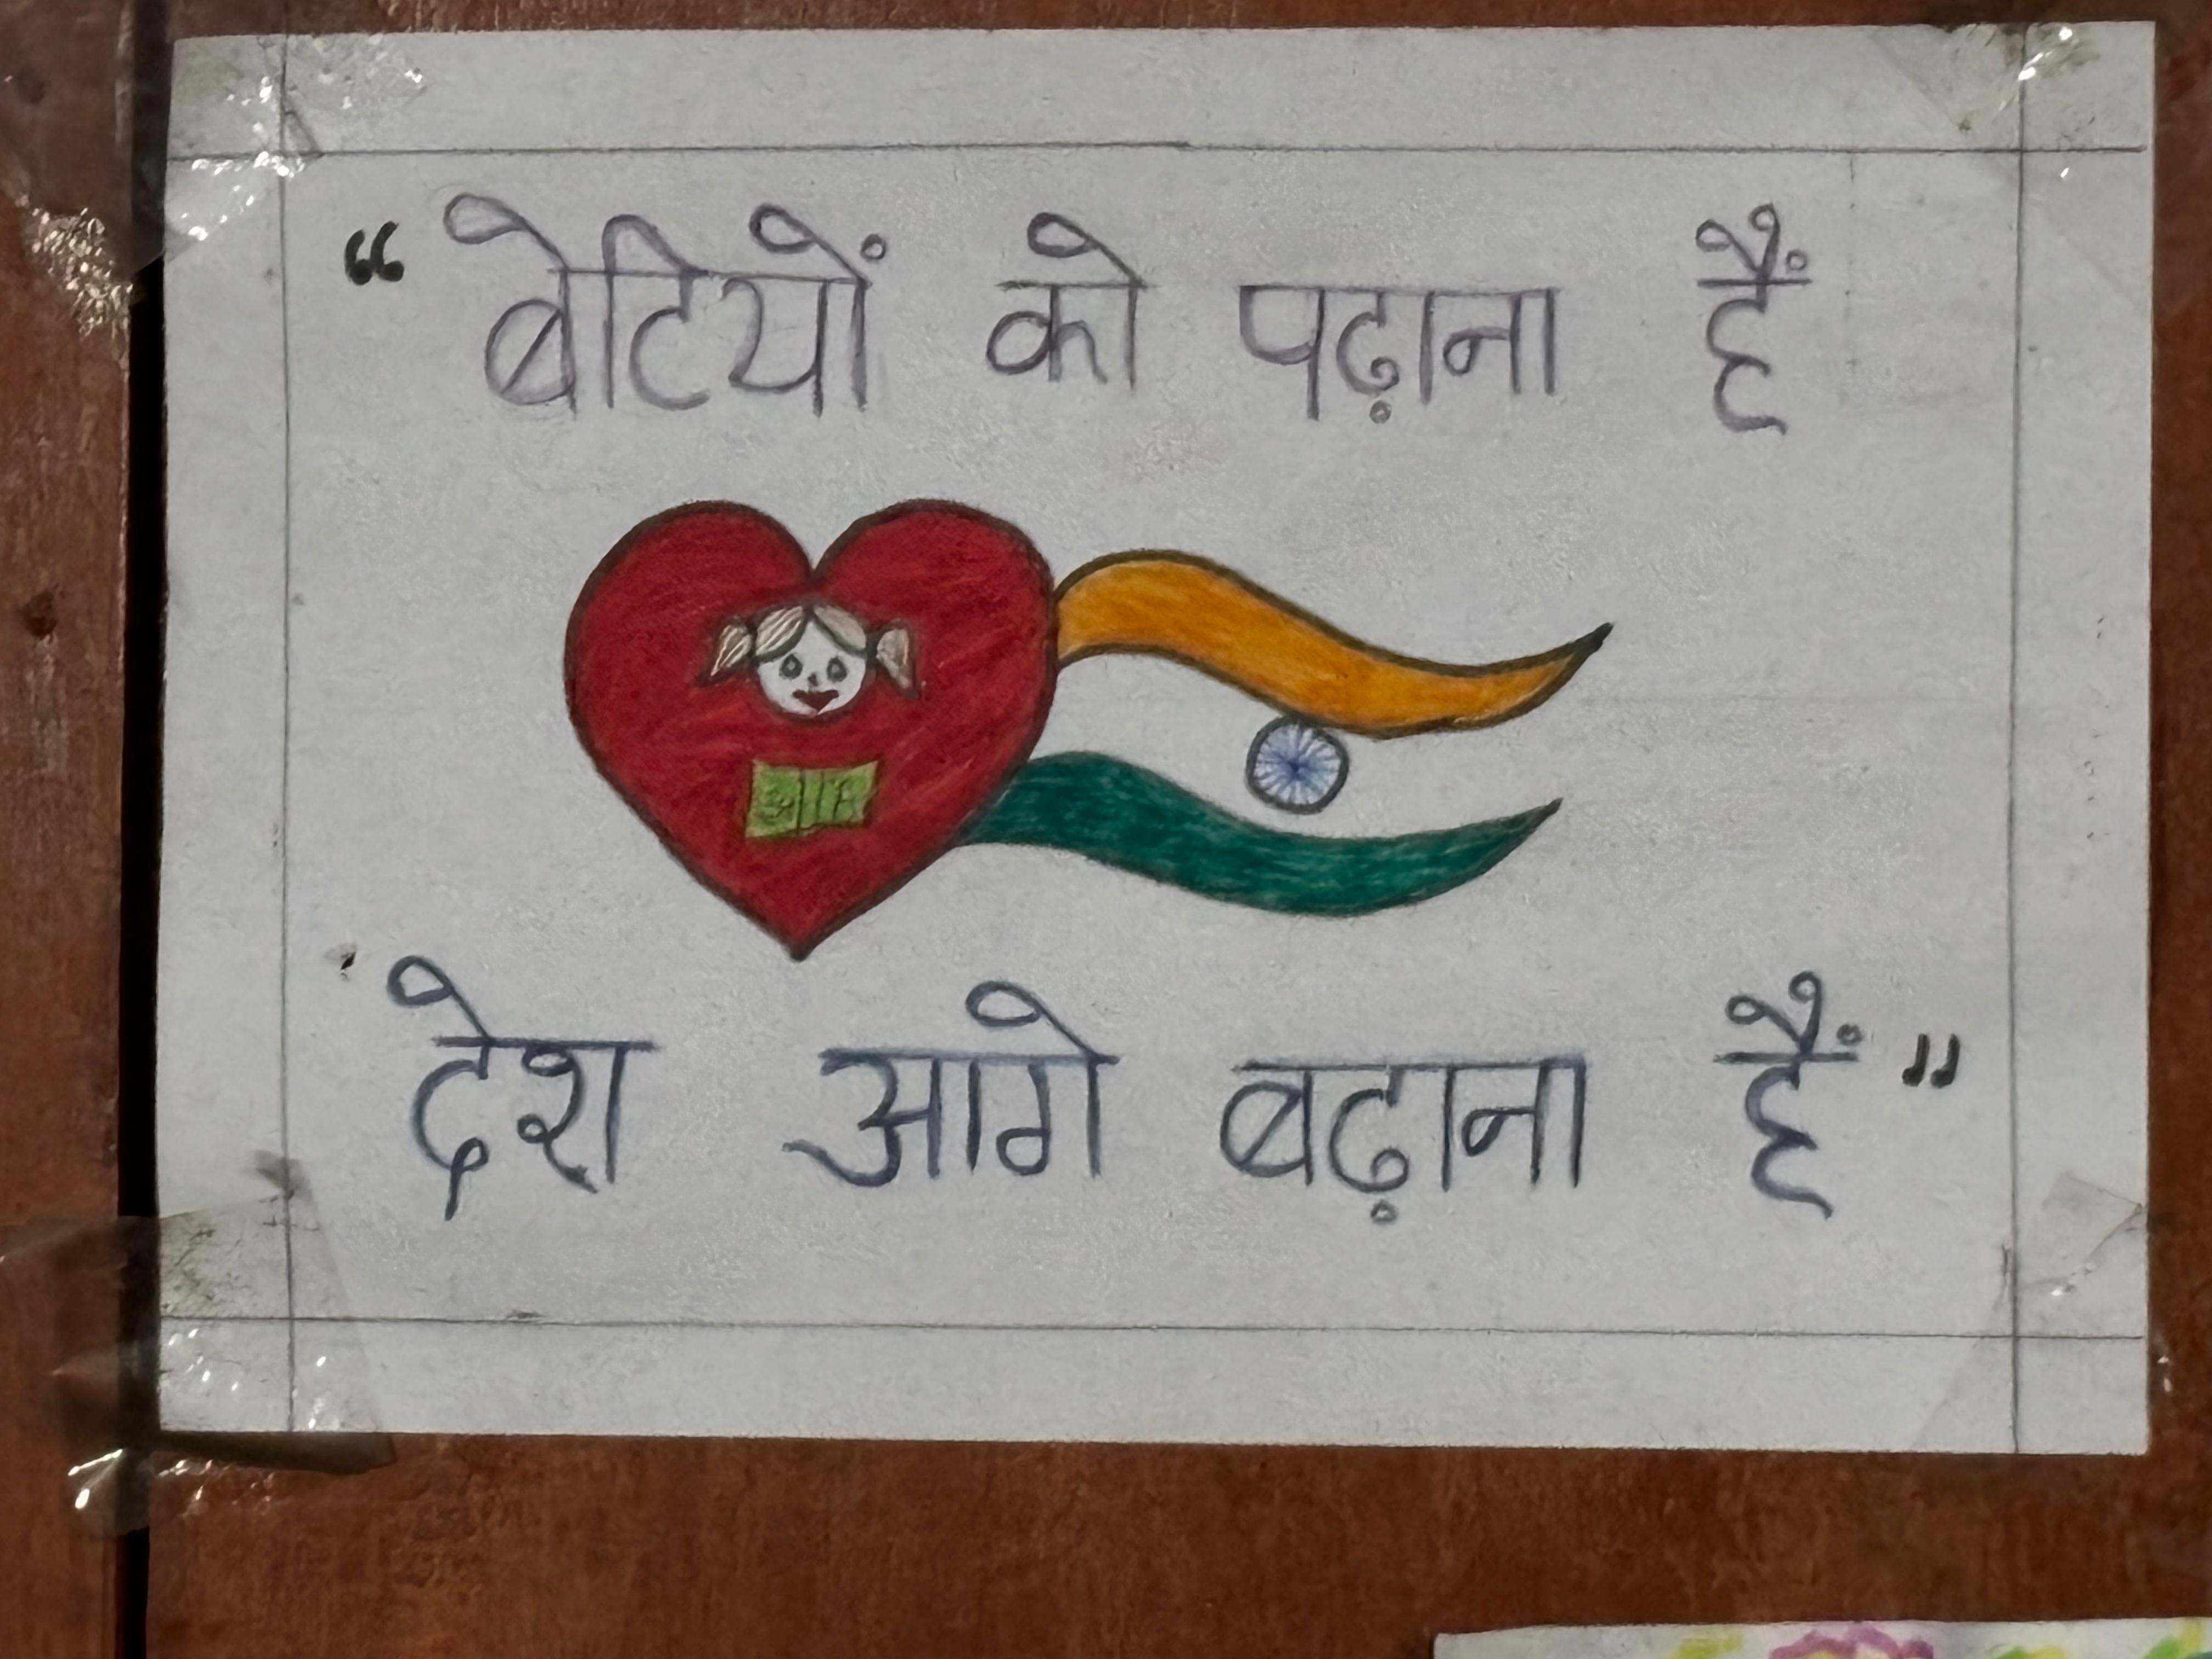 “बेटियों को पढ़ाना हैं
देश आगे बढ़ाना हैं”